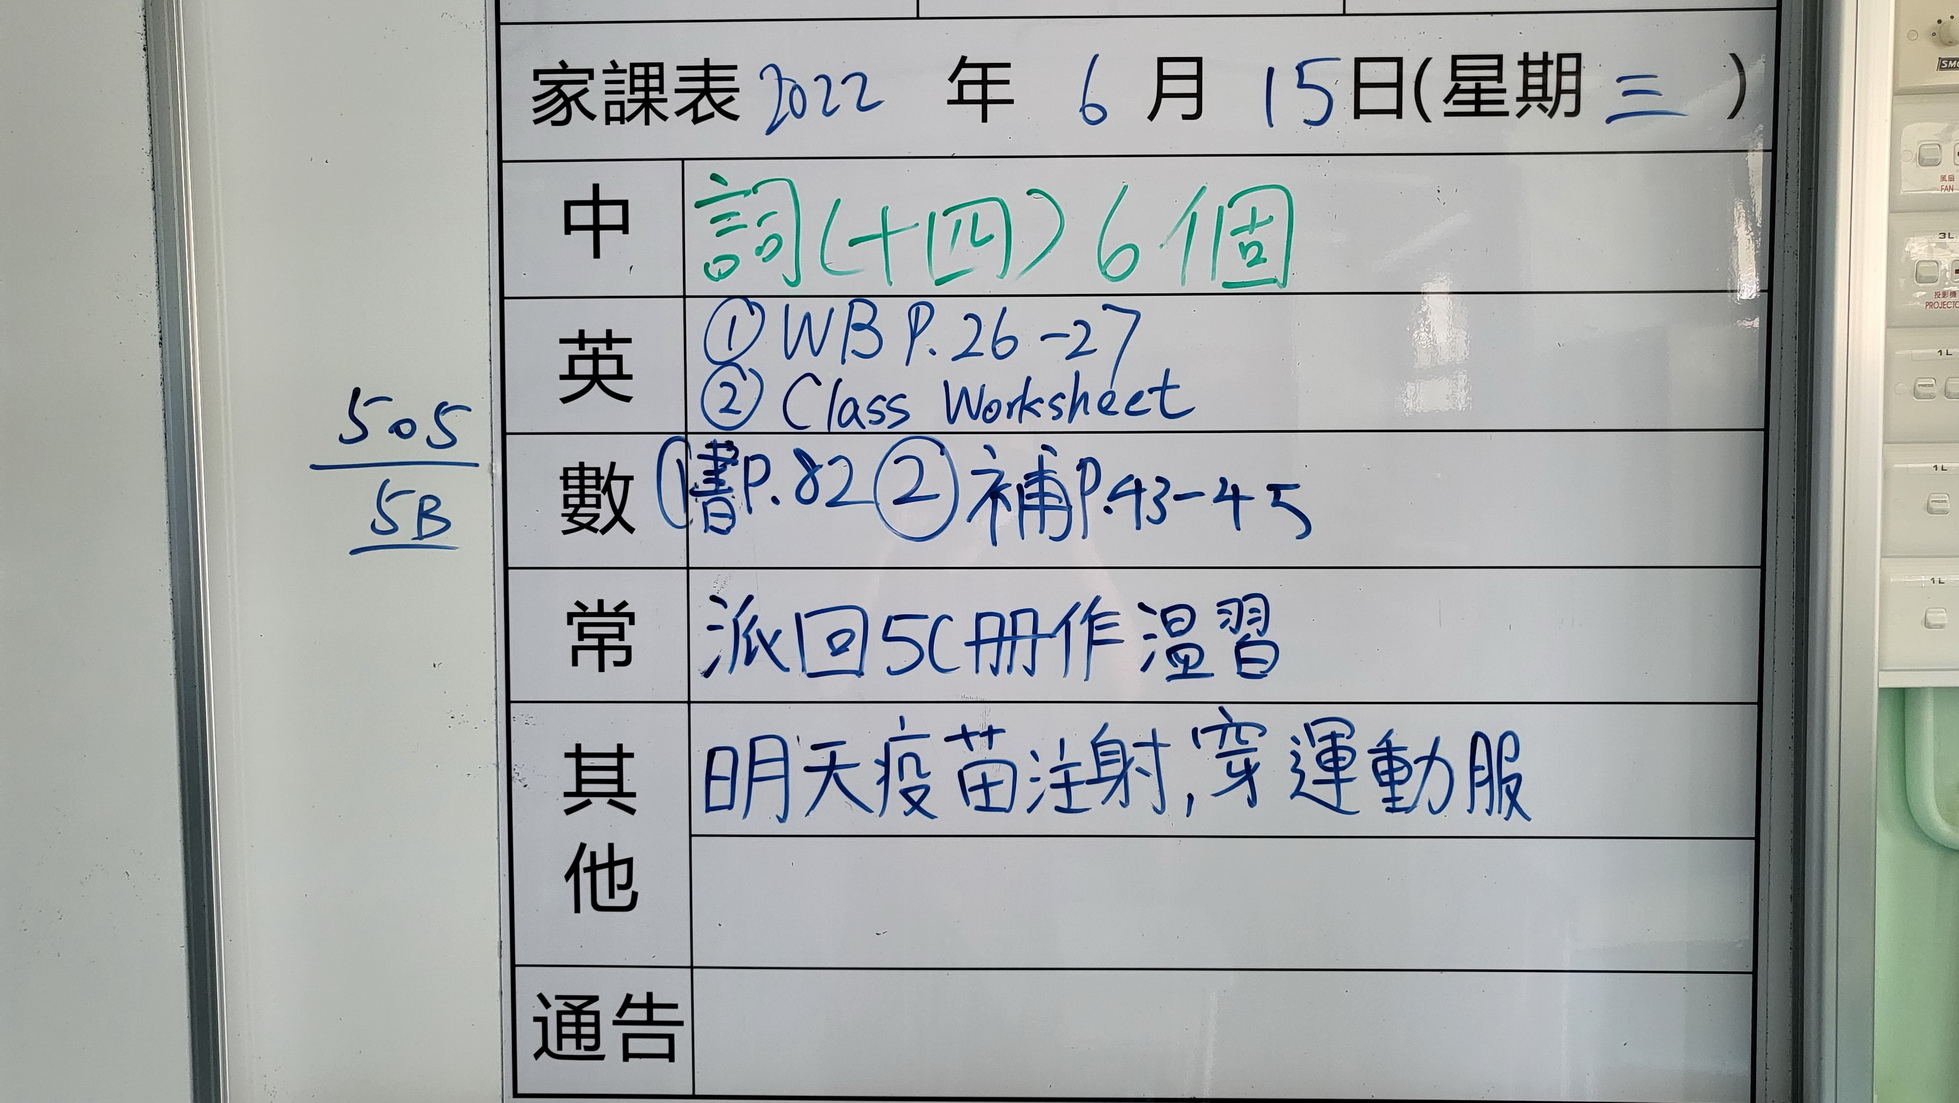 家課表 2022 年 6 月 15日(星期三)
中 詞(十四) 6個
英 ① WB P.26-27
② Class Worksheet
505
5B
數 ①書P.82 ②補P.43-45
常 派回5C冊作溫習
其他 明天疫苗注射,穿運動服
通告
風扇
FAN
3L
投影機
1L
1L
1L